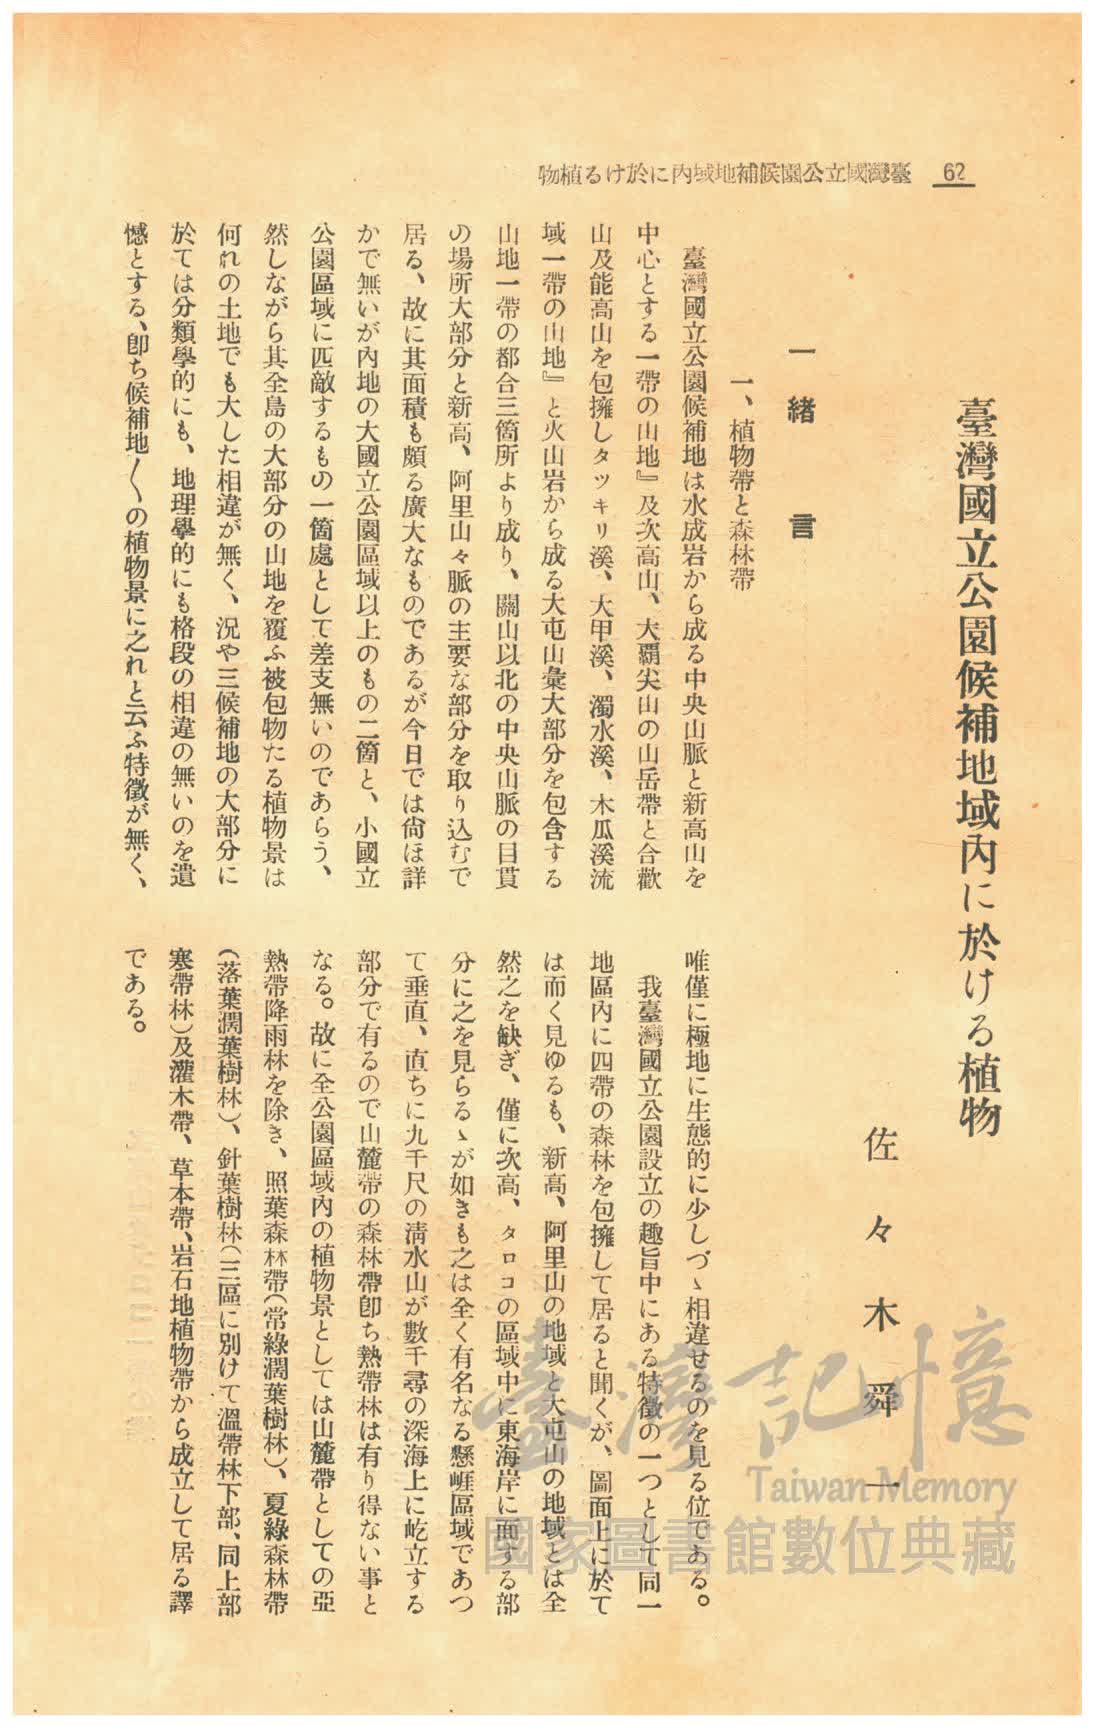 62
臺灣國立公園候補地域內に於ける植物
臺灣國立公園候補地域內に於ける植物
佐々木舜一
一 緒言
一、植物帶と森林帶
臺灣國立公園候補地は水成岩から成る中央山脈と新高山を
中心とする一帶の山地』及次高山、大霸尖山の山岳帶と合歡
山及能高山を包擁しタツキリ溪、大甲溪、濁水溪、木瓜溪流
域一帶の山地』と火山岩から成る大屯山彙大部分を包含する
山地一帶の都合三箇所より成り、關山以北の中央山脈の目貫
の場所大部分と新高、阿里山々脈の主要な部分を取り込むで
居る、故に其面積も頗る廣大なものであるが今日では尙ほ詳
かで無いが內地の大國立公園區域以上のもの二箇と、小國立
公園區域に匹敵するもの一箇處として差支無いのであらう、
然しながら其全島の大部分の山地を覆ふ被包物たる植物景は
何れの土地でも大した相違が無く、況や三候補地の大部分に
於ては分類學的にも、地理學的にも格段の相違の無いのを遺
憾とする、卽ち候補地〱の植物景に之れと云ふ特徵が無く、
唯僅に極地に生態的に少しづゝ相違せるのを見る位である。
我臺灣國立公園設立の趣旨中にある特徵の一つとして同一
地區內に四帶の森林を包擁して居ると聞くが、圖面上に於て
は而く見ゆるも、新高、阿里山の地域と大屯山の地域とは全
然之を缺ぎ、僅に次高、タロコの區域中に東海岸に面する部
分に之を見らるゝが如きも之は全く有名なる懸崕區域であつ
て垂直、直ちに九千尺の淸水山が數千尋の深海上に屹立する
部分で有るので山麓帶の森林帶卽ち熱帶林は有り得ない事と
なる。故に全公園區域內の植物景としては山麓帶としての亞
熱帶降雨林を除き、照葉森林帶(常綠濶葉樹林)、夏綠森林帶
(落葉濶葉樹林)、針葉樹林(三區に別けて溫帶林下部、同上部
寒帶林)及灌木帶、草本帶、岩石地植物帶から成立して居る譯
である。
臺灣記憶
Taiwan Memory
國家圖書館數位典藏